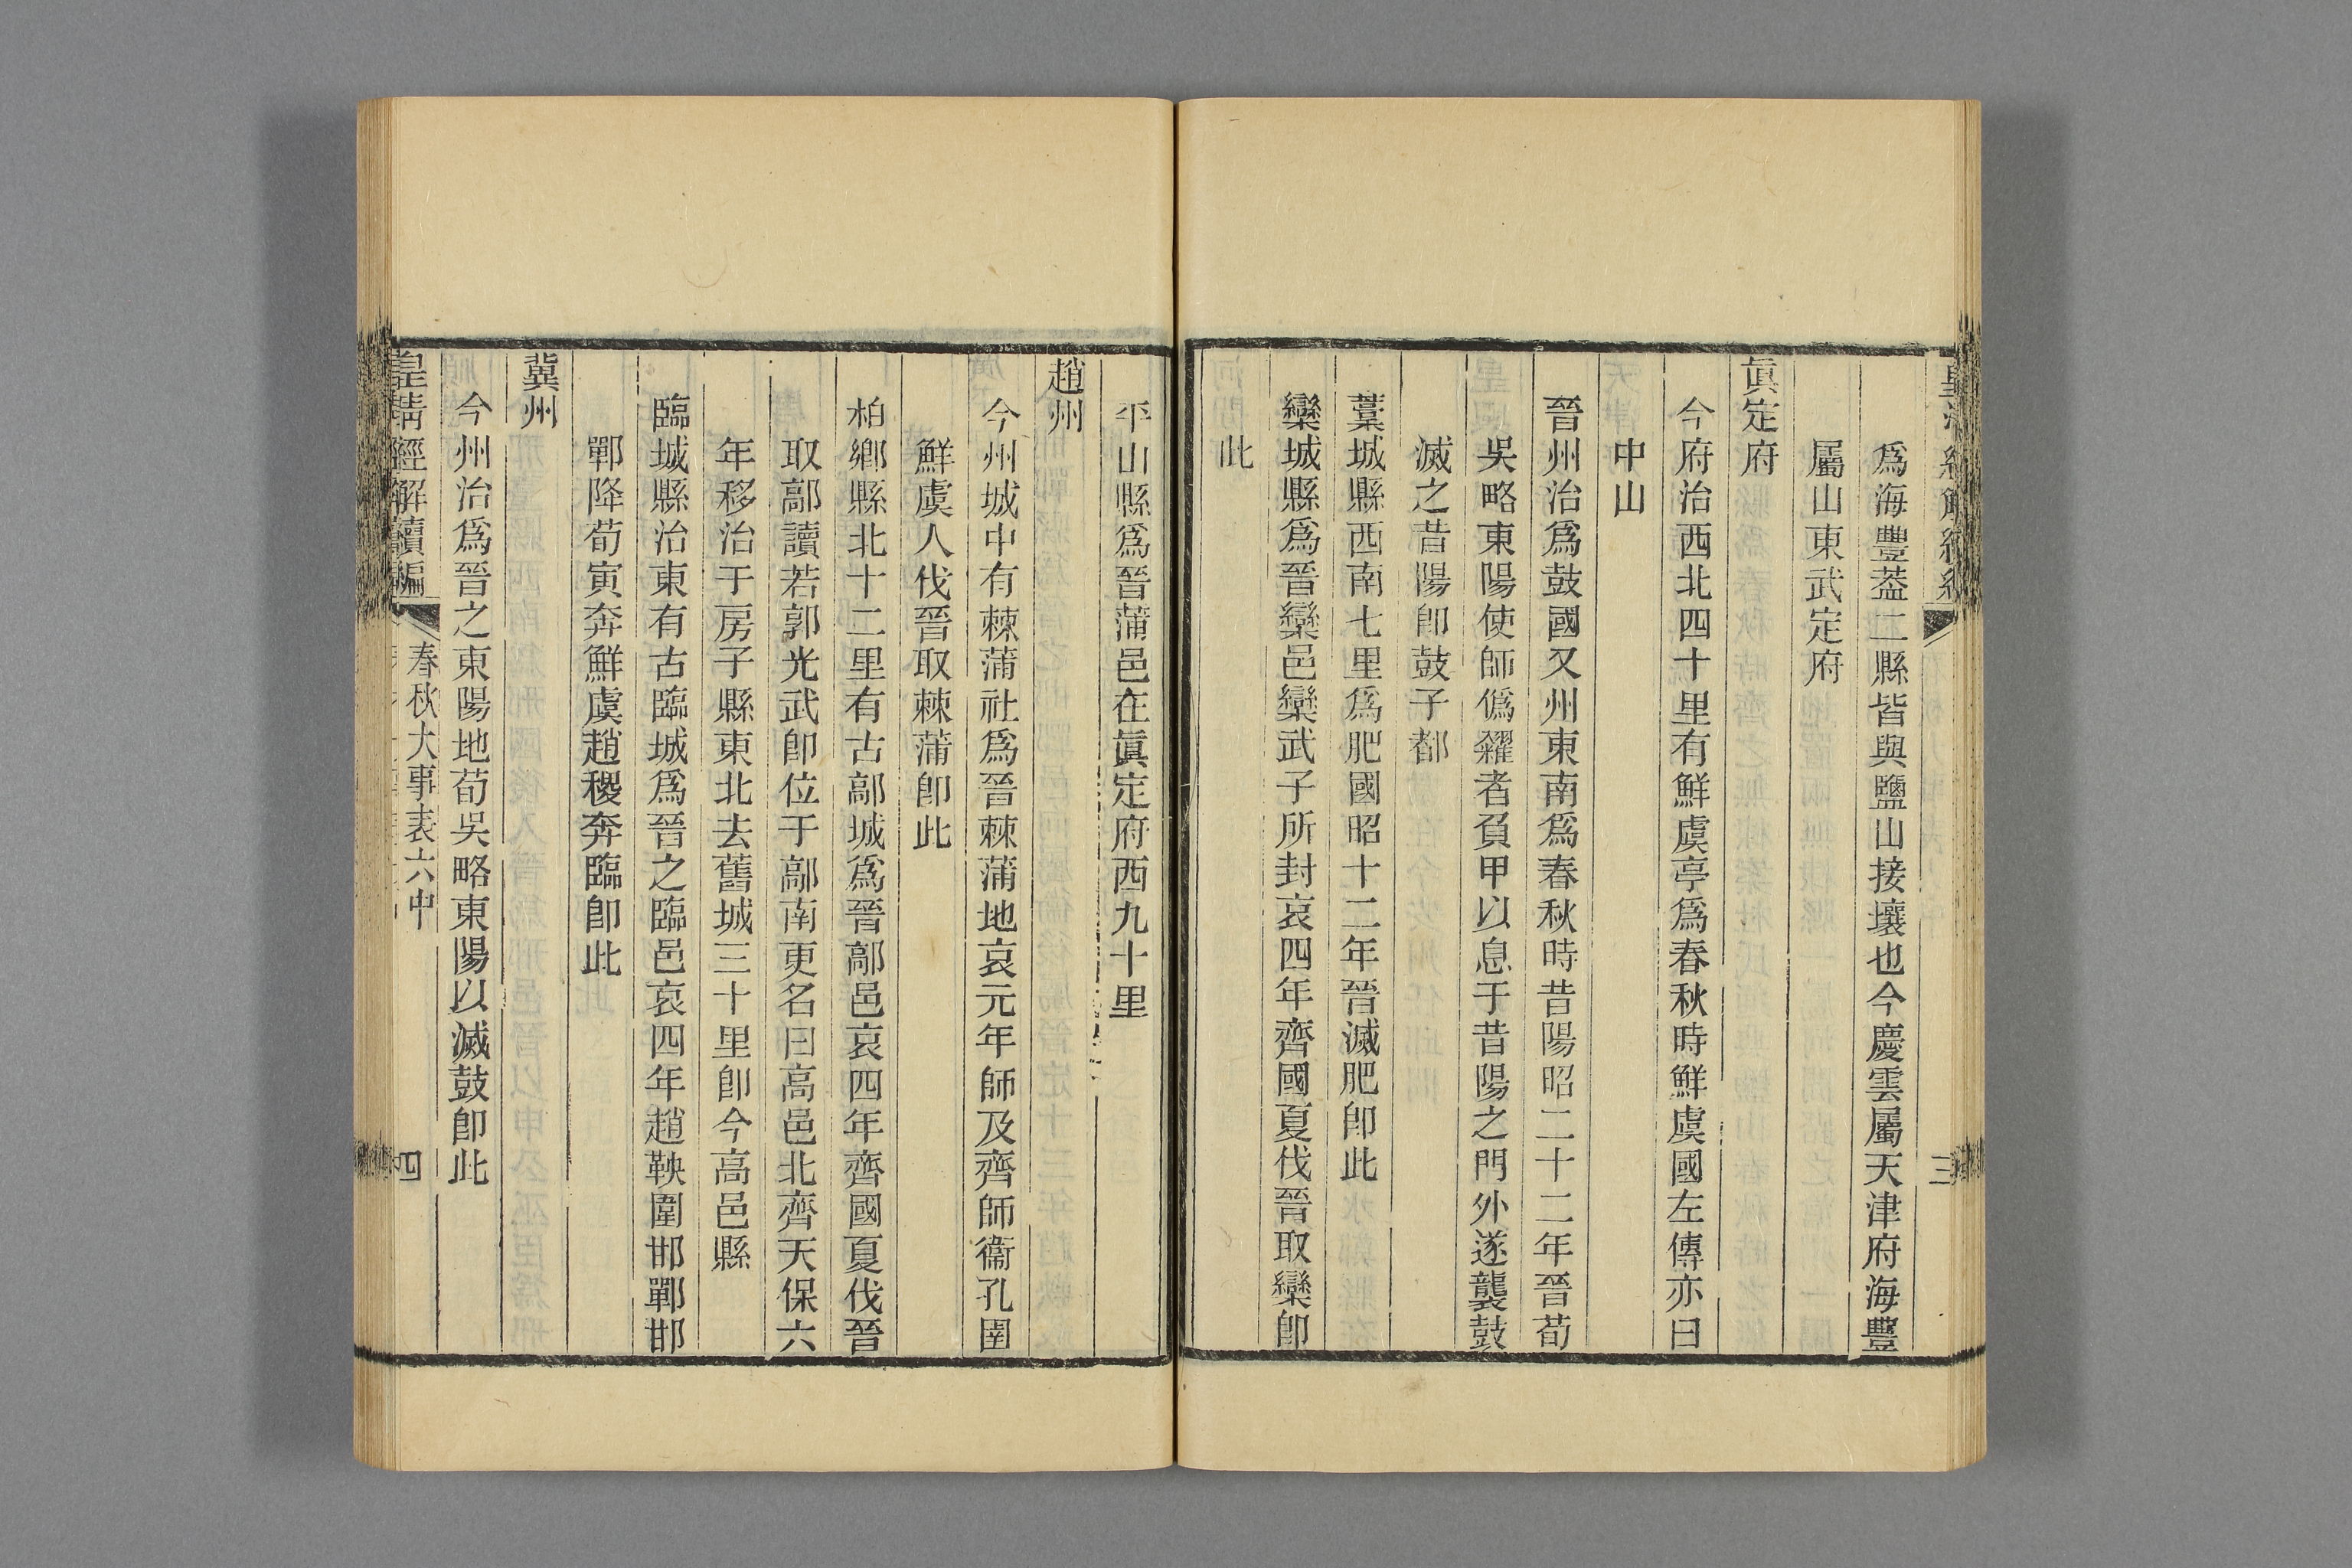 爲海豐葢二縣皆與鹽山接壤也今慶雲屬天津府海豐
屬山東武定府
眞定府
今府治西北四十里有鮮虞亭爲春秋時鮮虞國左傳亦曰
中山
晉州治爲鼓國又州東南爲春秋時昔陽昭二十二年晉荀
吳略東陽使師僞糴者負甲以息于昔陽之門外遂襲鼓
滅之昔陽卽鼓子都
藁城縣西南七里爲肥國昭十二年晉滅肥卽此
欒城縣爲晉欒邑欒武子所封哀四年齊國夏伐晉取欒卽
此
三
平山縣爲晉蒲邑在眞定府西九十里
趙州
今州城中有棘蒲社爲晉棘蒲地哀元年師及齊師衞孔圉
鮮虞人伐晉取棘蒲卽此
柏鄉縣北十二里有古鄗城爲晉鄗邑哀四年齊國夏伐晉
取鄗讀若郭光武卽位于鄗南更名曰高邑北齊天保六
年移治于房子縣東北去舊城三十里卽今高邑縣
臨城縣治東有古臨城爲晉之臨邑哀四年趙鞅圍邯鄲邯
鄲降荀寅奔鮮虞趙稷奔臨卽此
冀州
今州治爲晉之東陽地荀吳略東陽以滅鼓卽此
皇淸經解續編
春秋大事表六中
四